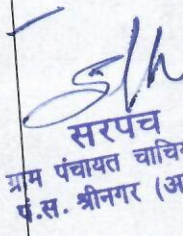 सरपंच
ग्राम पंचायत चाचि
पं.स. श्रीनगर (अ